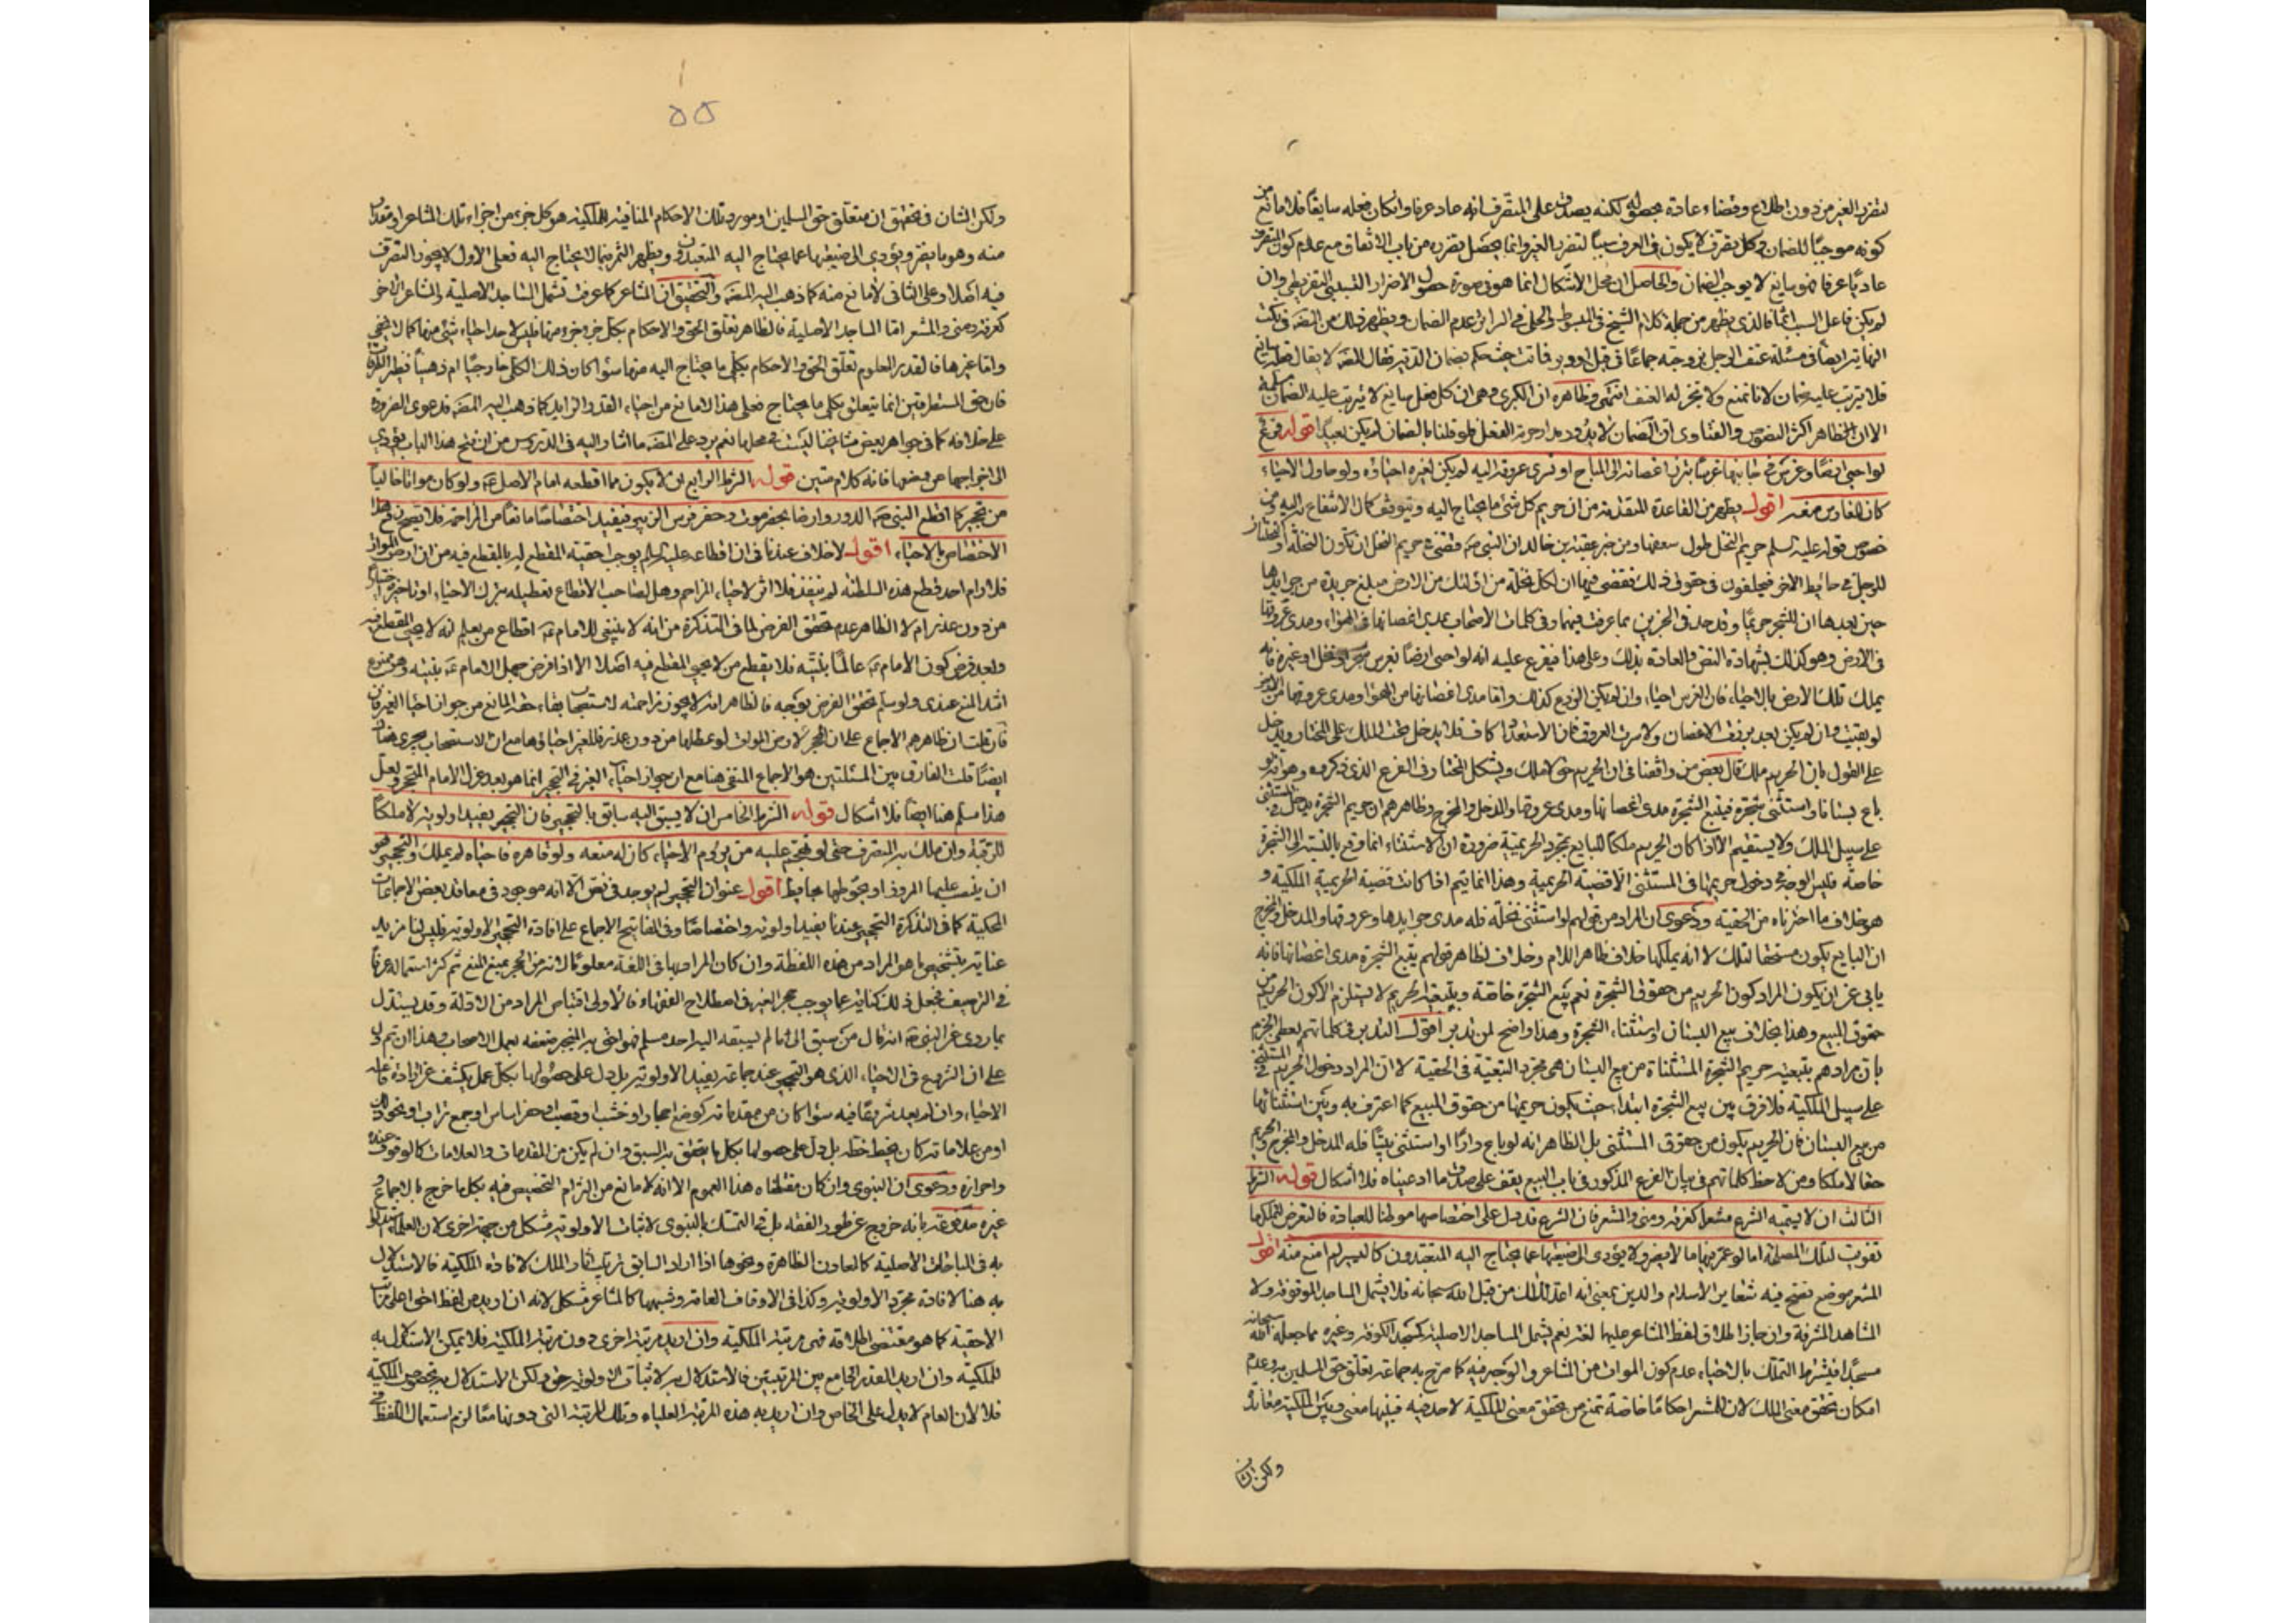 لتضرر الغير من دون اطلاع وقضاء عادة بحصوله لكنه يصدق على المتصرف انه عاد عرفا وان كان فعله سايغا فلا مانع من
كونه موجبا للضمان وكل تصرف لا يكون في العرف سببا لتضرر الغير وانما يحصل تضرره من باب الاتفاق مع عدم كون المتصرف
عاديا عرفا فهو سايغ لا يوجب الضمان والحاصل ان محل الاشكال انما هو في صورة حصول الاضرار التسبيبي التفريطي وان
لم يكن فاعل السبب اثما فالذي يظهر من جملة كلام الشيخ في المبسوط والحلي في السرائر عدم الضمان ويظهر ذلك من المصنف في
النهاية ايضا في مسئلة عنف الرجل بزوجته جماعا في قبل او دبر فماتت حيث حكم بضمان الدية فقال المصنف لا يقال فعل سايغ
فلا يترتب عليه ضمان لانا نمنع ولا نجوز له العنف انتهى وظاهره ان الكبرى وهي ان كل فعل سايغ لا يترتب عليه الضمان مسلمة
الا ان الظاهر اكثر النصوص والفتاوى ان الضمان لا يدور مدار حرمة الفعل فلو قلنا بالضمان لم يكن بعيدا قوله فرع
لو احيى ارضا وغرس في جانبها غرسا تبرز اغصانه الى المباح او تسرى عروقه اليه لم يكن لغيره احياؤه ولو حاول الاحياء
كان للغارس منعه اقول يظهر من القاعدة المتقدمة من ان حريم كل شئ ما يحتاج اليه ويتوقف كمال الانتفاع به اليه ومن
خصوص قوله عليه السلم حريم النخل طول سعفها ومن خبر عقبة بن خالد ان النبي ص قضى في حريم النخل ان تكون النخلة والنخلتان
للرجل في حائط الاخر فيختلفون في حقوق ذلك فقضى فيها ان لكل نخلة من اولئك من الارض مبلغ جريدة من جرايدها
حين بعدها ان للشجر حريما وقد حد في الخبرين بما عرفت فيهما وفي كلمات الاصحاب بمدى اغصانها في الهواء ومدى عروقها
في الارض وهو كذلك بشهادة النص والعادة بذلك وعلى هذا فيفرع عليه انه لو احيى ارضا بغرس شجر او نخل او غيره فانه
يملك تلك الارض بالاحياء فان الغرس احياء وان لم يكن الزرع كذلك واما مدى اغصانها من الهواء ومدى عروقها من الارض
لو بقيت وان لم يكن بعد برزت الاغصان ولا سرت العروق فان الاستعداد كاف فلا يدخل تحت الملك على المختار ويدخل
على القول بان الحريم ملك قال بعض من وافقنا في ان الحريم حق لا ملك ويشكل المختار في الفرع الذي ذكروه وهو انه لو
باع بستانا واستثنى شجرة فيتبع الشجرة مدى اغصانها ومدى عروقها والمدخل والمخرج وظاهرهم ان حريم الشجرة يدخل في المستثنى
على سبيل الملك ولا يستقيم الا اذا كان الحريم ملكا للبايع بمجرد الحريمية ضرورة ان الاستثناء انما وقع بالنسبة الى الشجرة
خاصة فليس الوجه في دخول حريمها في المستثنى الا قضية الحريمية وهذا انما يتم اذا كانت قضية الحريمية الملكية و
هو خلاف ما اخترناه من الحقية ودعوى ان المراد من قولهم لو استثنى نخلة فله مدى جرايدها وعروقها والمدخل والمخرج
ان البايع يكون مستحقا لتلك لا انه يملكها خلاف ظاهر اللام وخلاف ظاهر قولهم يتبع الشجرة مدى اغصانها فانه
يابى عن ان يكون المراد كون الحريم من حقوق الشجرة نعم بيع الشجرة خاصة وبتبعية الحريم لا يستلزم الا كون الحريم من
حقوق المبيع وهذا بخلاف بيع البستان واستثناء الشجرة وهذا واضح لمن تدبر اقول التدبر في كلماتهم يعطى الجزم
بان مرادهم بتبعية حريم الشجرة المستثناة من بيع البستان هي مجرد التبعية في الحقية لا ان المراد دخول الحريم في المستثنى
على سبيل الملكية فلا فرق بين بيع الشجرة ابتداء حيث يكون حريمها من حقوق المبيع كما اعترف به وبين استثنائها
من بيع البستان فان الحريم يكون من حقوق المستثنى بل الظاهر انه لو باع دارا واستثنى بيتا فله المدخل والمخرج والحريم
حقا لا ملكا ومن لاحظ كلماتهم في بيان الفرع المذكور في باب البيع يقف على صدق ما ادعيناه فلا اشكال قوله الشرط
الثالث ان لا يسميه الشرع مشعرا كعرفة ومنى والمشعر فان الشرع قد دل على اختصاصها موطنا للعبادة فالتعرض لتملكها
تفويت لتلك المصلحة اما لو عمر فيها ما لا يضر ولا يؤدي الى ضيقها عما يحتاج اليه المتعبدون كاليسير لم امنع منه اقول
المشعر موضع تفتح فيه شعاير الاسلام والدين بمعنى انه اعد لذلك من قبل الله سبحانه فلا يشمل المساجد الموقوفة ولا
المشاهد المشرفة وان جاز اطلاق لفظ المشاعر عليها لغة نعم يشمل المساجد الاصلية كمسجد الكوفة وغيره مما جعله الله سبحانه
مسجدا فيشترط التملك بالاحياء عدم كون الموات من المشاعر والوجه فيه كما صرح به جماعة تعلق حق المسلمين به وعدم
امكان تحقق معنى الملك لان للمشعر احكاما خاصة تمنع من تحقق معنى الملكية لاحد فيه فبينها معنى وبين الملكية معاندة
ولكن الشان
۵۵
ولكن الشان في تحقيق ان متعلق حق المسلمين او مورد تلك الاحكام المنافية للملكية هو كل جزء من اجزاء تلك المشاعر او مقدار
منه وهو ما يضر ويؤدي الى ضيقها عما يحتاج اليه المتعبدون ويظهر الثمر فيما لا يحتاج اليه فعلى الاول لا يجوز التصرف
فيه اصلا وعلى الثاني لا مانع منه كما ذهب اليه المصنف والتحقيق ان المشاعر كما عرفت تشمل المساجد الاصلية والمشاعر الاخر
كعرفة ومنى والمشعر اما المساجد الاصلية فالظاهر تعلق الحق والاحكام بكل جزء جزء منها فليس لاحد احياء شئ منها كما لا يخفى
واما غيرها فالقدر المعلوم تعلق الحق والاحكام بكلى ما يحتاج اليه منها سواء كان ذلك الكلى خارجيا ام ذهنيا نظير الطرقات
فان حق المستطرقين انما يتعلق بكلى ما يحتاج فعلى هذا لا مانع من احياء القدر الزايد كما ذهب اليه المصنف فدعوى الضرورة
على خلافه كما في جواهر بعض مشايخنا ليست في محلها نعم يرد على المصنف ما اشار اليه في الدروس من ان فتح هذا الباب يؤدي
الى اخراجها عن وضعها فانه كلام متين قوله الشرط الرابع ان لا يكون مما اقطعه امام الاصل ع ولو كان مواتا خاليا
من تحجير كما اقطع النبي ص الدور وارضا بحضرموت وحضر فرس الزبير فيفيد اختصاصا مانعا من المزاحمة فلا يصح دفع هذا
الاختصاص بالاحياء اقول لا خلاف عندنا في ان اقطاعه عليه السلم يوجب احقية المقطع له بالمقطع فيه من ارض الموات
فلو رام احد قطع هذه السلطنة لم ينفذ فلا اثر لاحياء المزاحم وهل لصاحب الاقطاع تعطيله بترك الاحياء او تاخيره اختيارا
من دون عذر ام لا الظاهر عدم تحقق الفرض لما في التذكرة من انه لا ينبغي للامام ع اقطاع من يعلم انه لا يحيى المقطع فيه
وبعد فرض كون الامام ع عالما بنيته فلا يقطع من لا يحيى المقطع فيه اصلا الا اذا فرض جهل الامام ع بنيته وهو ممنوع
اشد المنع عندي ولو سلم تحقق الفرض بوجه فالظاهر انه لا يجوز مزاحمته لاستصحاب بقاء حقه المانع من جواز احياء الغير فان
فان قلت ان ظاهرهم الاجماع على ان المحجر لارض الموات لو عطلها من دون عذر فللغير احياؤها مع ان الاستصحاب يجري هناك
ايضا قلت الفارق بين المسئلتين هو الاجماع المنفي هنا مع ان جواز احياء الغير في التحجير انما هو بعد عزل الامام المتحجر ولعل
هذا مسلم هنا ايضا فلا اشكال قوله الشرط الخامس ان لا يسبق اليه سابق بالتحجير فان التحجير يفيد اولوية لا ملكا
للرقبة وان ملك به التصرف حتى لو تهجم عليه من يروم الاحياء كان له منعه ولو قاهره فاحياه لم يملك والتحجير هو
ان ينصب عليها المروز او يحوطها بحايط اقول عنوان التحجير لم يوجد في نص الا انه موجود في معاقد بعض الاجماعات
المحكية كما في التذكرة التحجير عندنا يفيد اولوية واختصاصا وفي المفاتيح الاجماع على افادة التحجير الاولوية فليس لنا مزيد
عناية بتشخيص ما هو المراد من هذه اللفظة وان كان المراد بها في اللغة معلوما لانه من الحجر بمعنى المنع ثم كثر استعماله عرفا
في الترصيف فجعل ذلك كناية عما يوجب حجر الغير في اصطلاح الفقهاء فالاولى اقتناص المراد من الادلة وقد يستدل
بما روى عن النبي ص انه قال من سبق الى ما لم يسبقه اليه احد مسلم فهو احق به المنجبر ضعفه بعمل الاصحاب وهذا ان تم دل
على ان الشروع في الاحياء الذي هو التحجير عند جماعة يفيد الاولوية بل دل على حصولها بكل عمل يكشف عن ارادة فاعله
الاحياء وان لم يعد شروعا فيه سواء كان من مقدماته كوضع احجار او خشب او قصب او حفر اساس او جمع تراب او نحو ذلك
او من علاماته كان يخط خطه بل دل على حصولها بكل ما يتحقق به السبق وان لم يكن من المقدمات والعلامات كالوقوف عنده
واحرازه ودعوى ان النبوي وان كان مقتضاه هذا العموم الا انه لا مانع من التزام التخصيص فيه بكل ما خرج بالاجماع و
غيره مدفوعة بانه خروج عن طور الفقه بل في التمسك بالنبوي لاثبات الاولوية مشكل من جهة اخرى لان العلماء استدلوا
به في المباحات الاصلية كالمعادن الظاهرة ونحوها اذا اراد السابق ترتيب اثار الملك لافادة الملكية فالاستدلال
به هنا لافادة مجرد الاولوية وكذا في الاوقاف العامة وشبهها كالمشاعر مشكل لانه ان اريد من لفظ احق اعلى مراتب
الاحقية كما هو مقتضى اطلاقه فهي مرتبة الملكية وان اريد مرتبة اخرى دون مرتبة الملكية فلا يمكن الاستدلال به
للملكية وان اريد القدر الجامع بين المرتبتين فالاستدلال به لاثبات الاولوية حق ولكن الاستدلال به لخصوص الملكية
فلا لان العام لا يدل على الخاص وان اريد به هذه المرتبة العلياء وتلك المرتبة التي دونها معا لزم استعمال اللفظ في